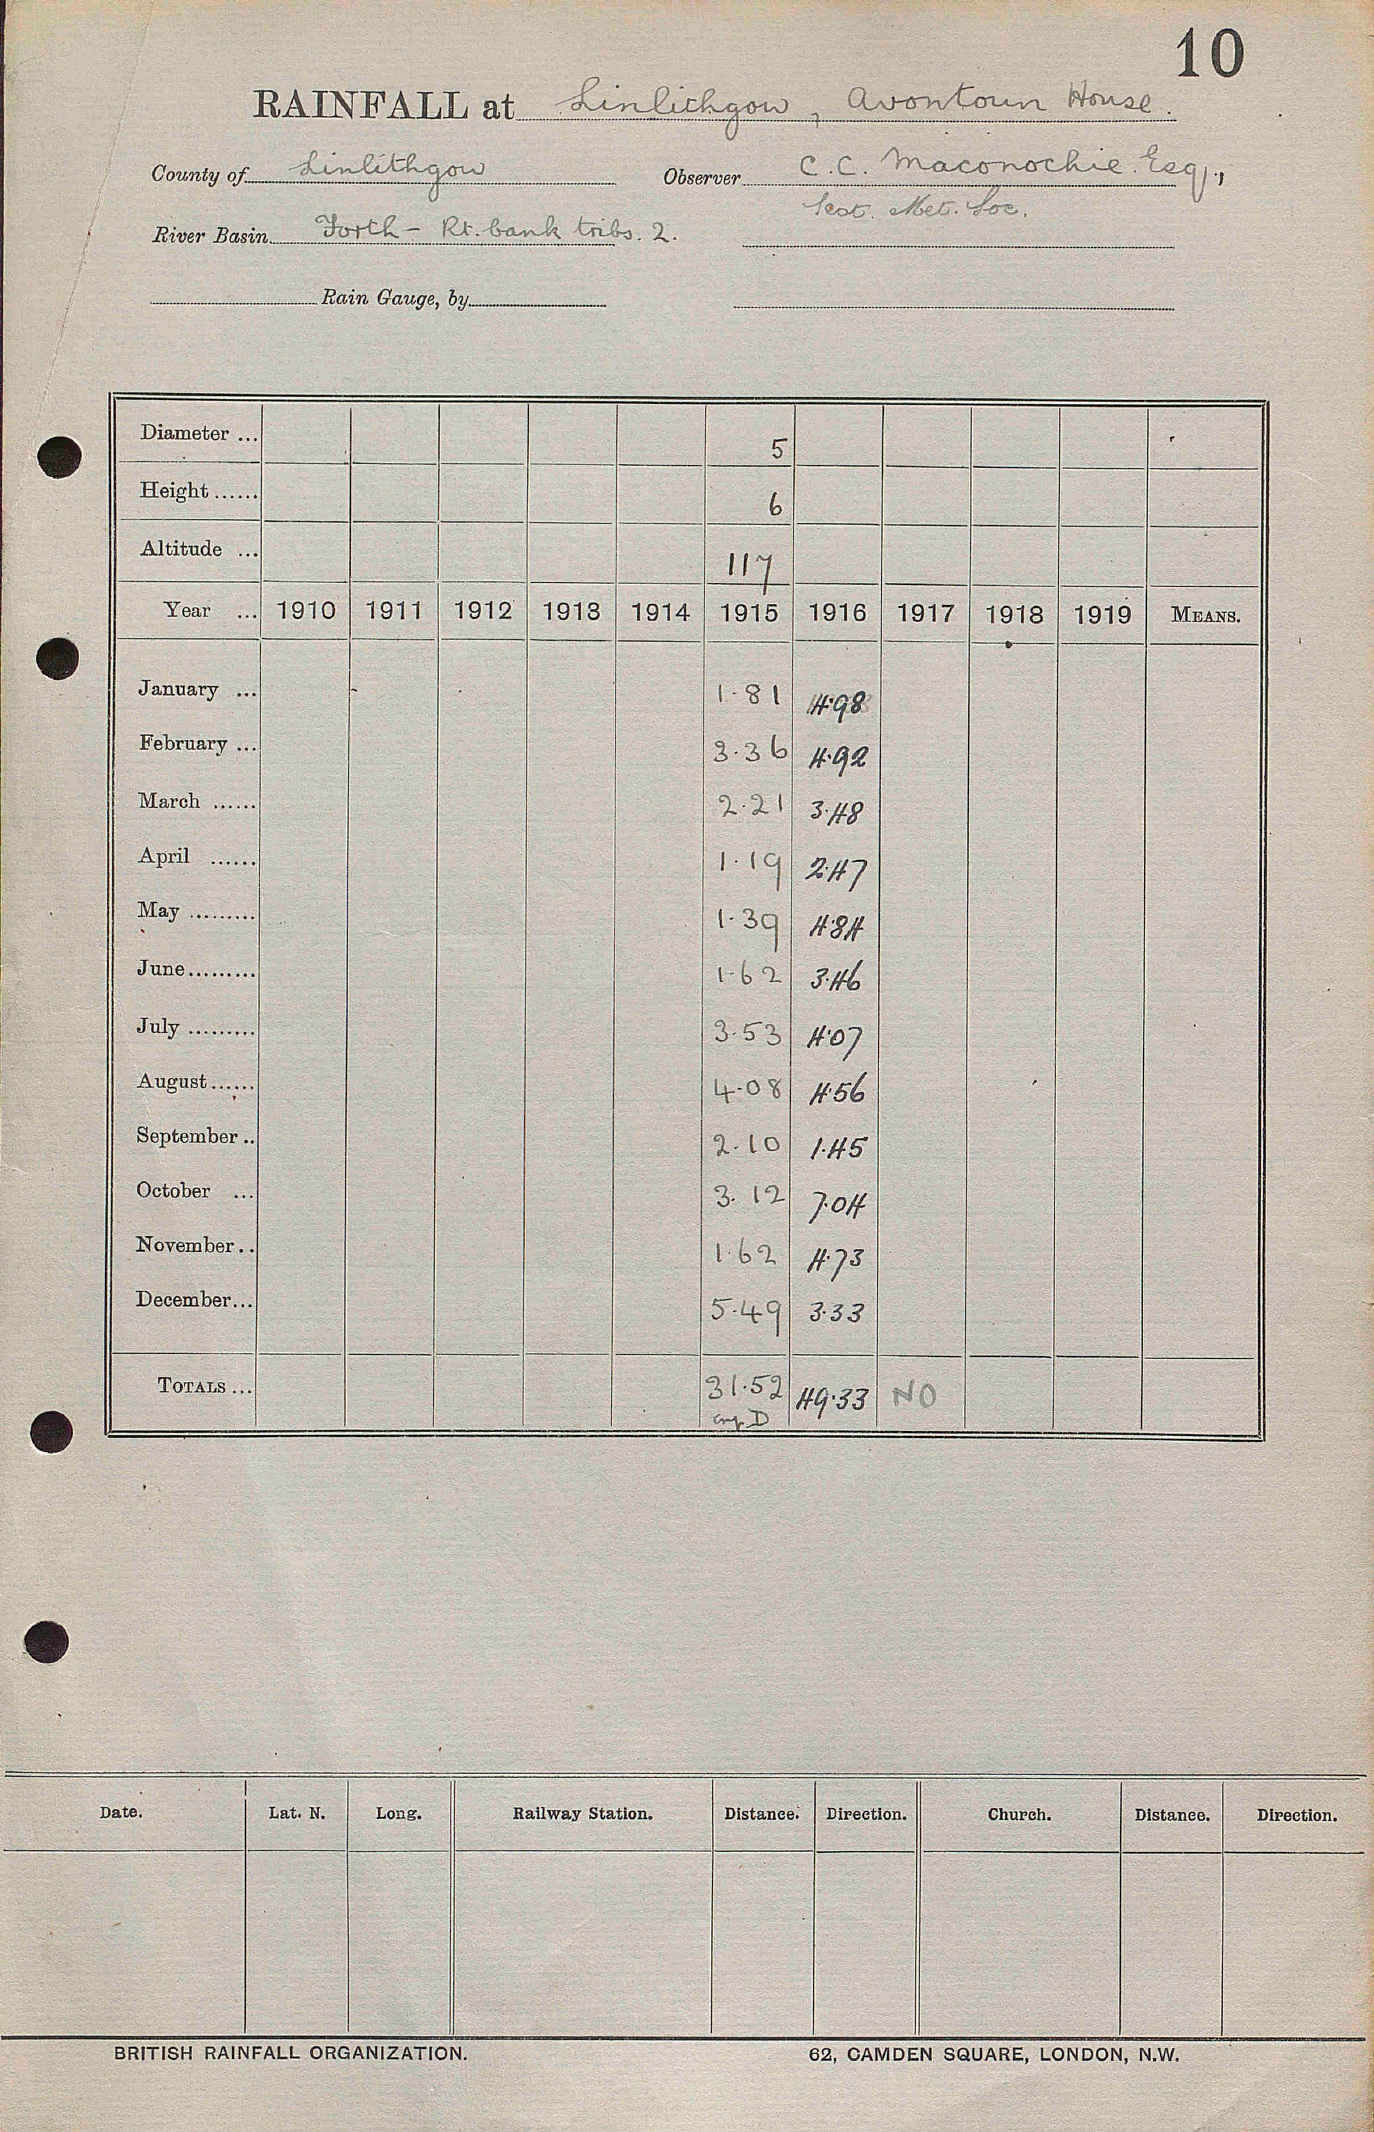 10
RAINFALL at Linlithgow, Avontoun House.
County of Linlithgow Observer C. C. Maconochie. Esq.,
Scot. Met. Soc.
River Basin Forth - Rt. bank tribs. 2.
Rain Gauge, by
Diameter ... 5
Height ...... 6
Altitude ... 117
Year ... 1910 1911 1912 1913 1914 1915 1916 1917 1918 1919 MEANS.
January ... 1.81 4.98
February ... 3.36 4.92
March ...... 2.21 3.48
April ...... 1.19 2.47
May ......... 1.39 4.84
June ......... 1.62 3.46
July ......... 3.53 4.07
August ...... 4.08 4.56
September .. 2.10 1.45
October ... 3.12 7.04
November .. 1.62 4.73
December ... 5.49 3.33
TOTALS ... 31.52 49.33 NO
D
Date. Lat. N. Long. Railway Station. Distance. Direction. Church. Distance. Direction.
BRITISH RAINFALL ORGANIZATION. 62, CAMDEN SQUARE, LONDON, N.W.